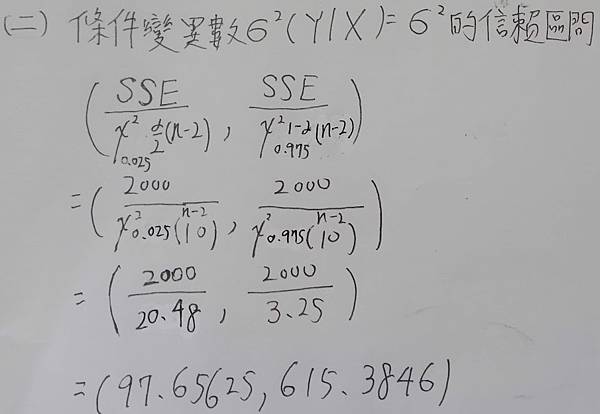 (二) 條件變異數σ²(Y|X)=σ²的信賴區間
(SSE/χ² α/2 (n-2), SSE/χ² 1-α (n-2))
0.025 0.975
=(2000/χ²0.025(10), 2000/χ²0.975(10))
n-2 n-2
=(2000/20.48, 2000/3.25)
=(97.65625, 615.3846)